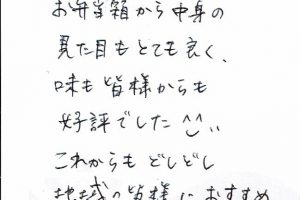 お弁当箱から中身の
見た目もとても良く、
味も皆様からも
好評でした ^^
これからも どしどし
地域の皆様におすすめ